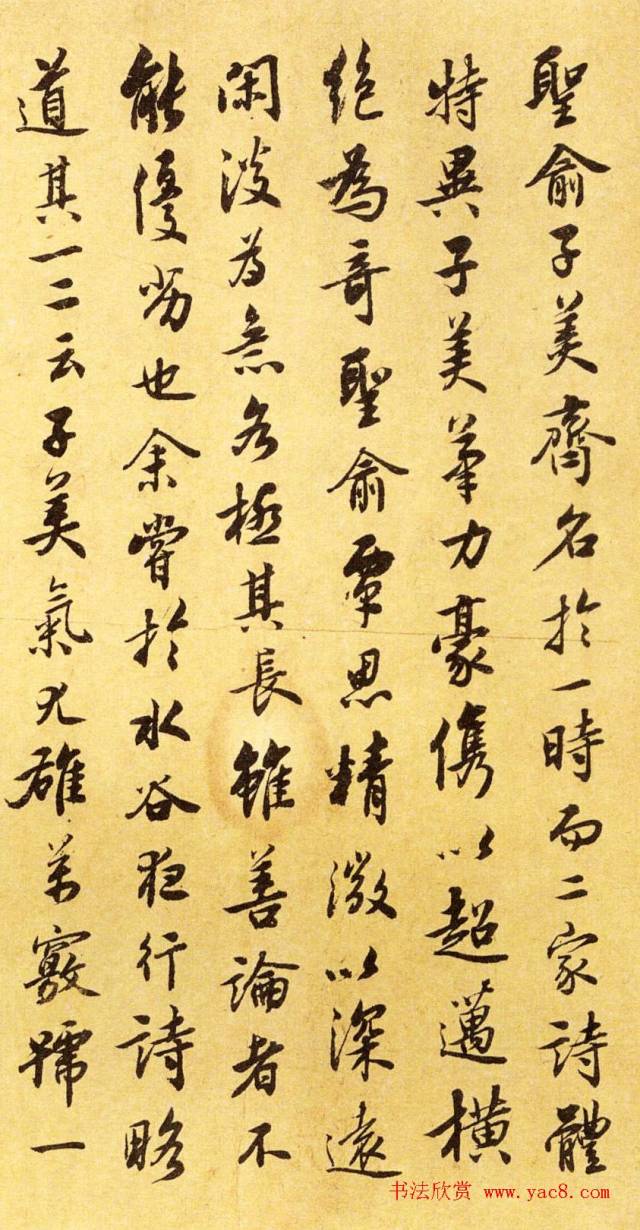 聖俞子美齊名於一時而二家詩體
特異子美筆力豪儁以超邁橫
絕為奇聖俞覃思精微以深遠
閑淡為意各極其長雖善論者不
能優劣也余嘗於水谷夜行詩略
道其一二云子美氣尤雄萬竅號一
书法欣赏 www.yac8.com